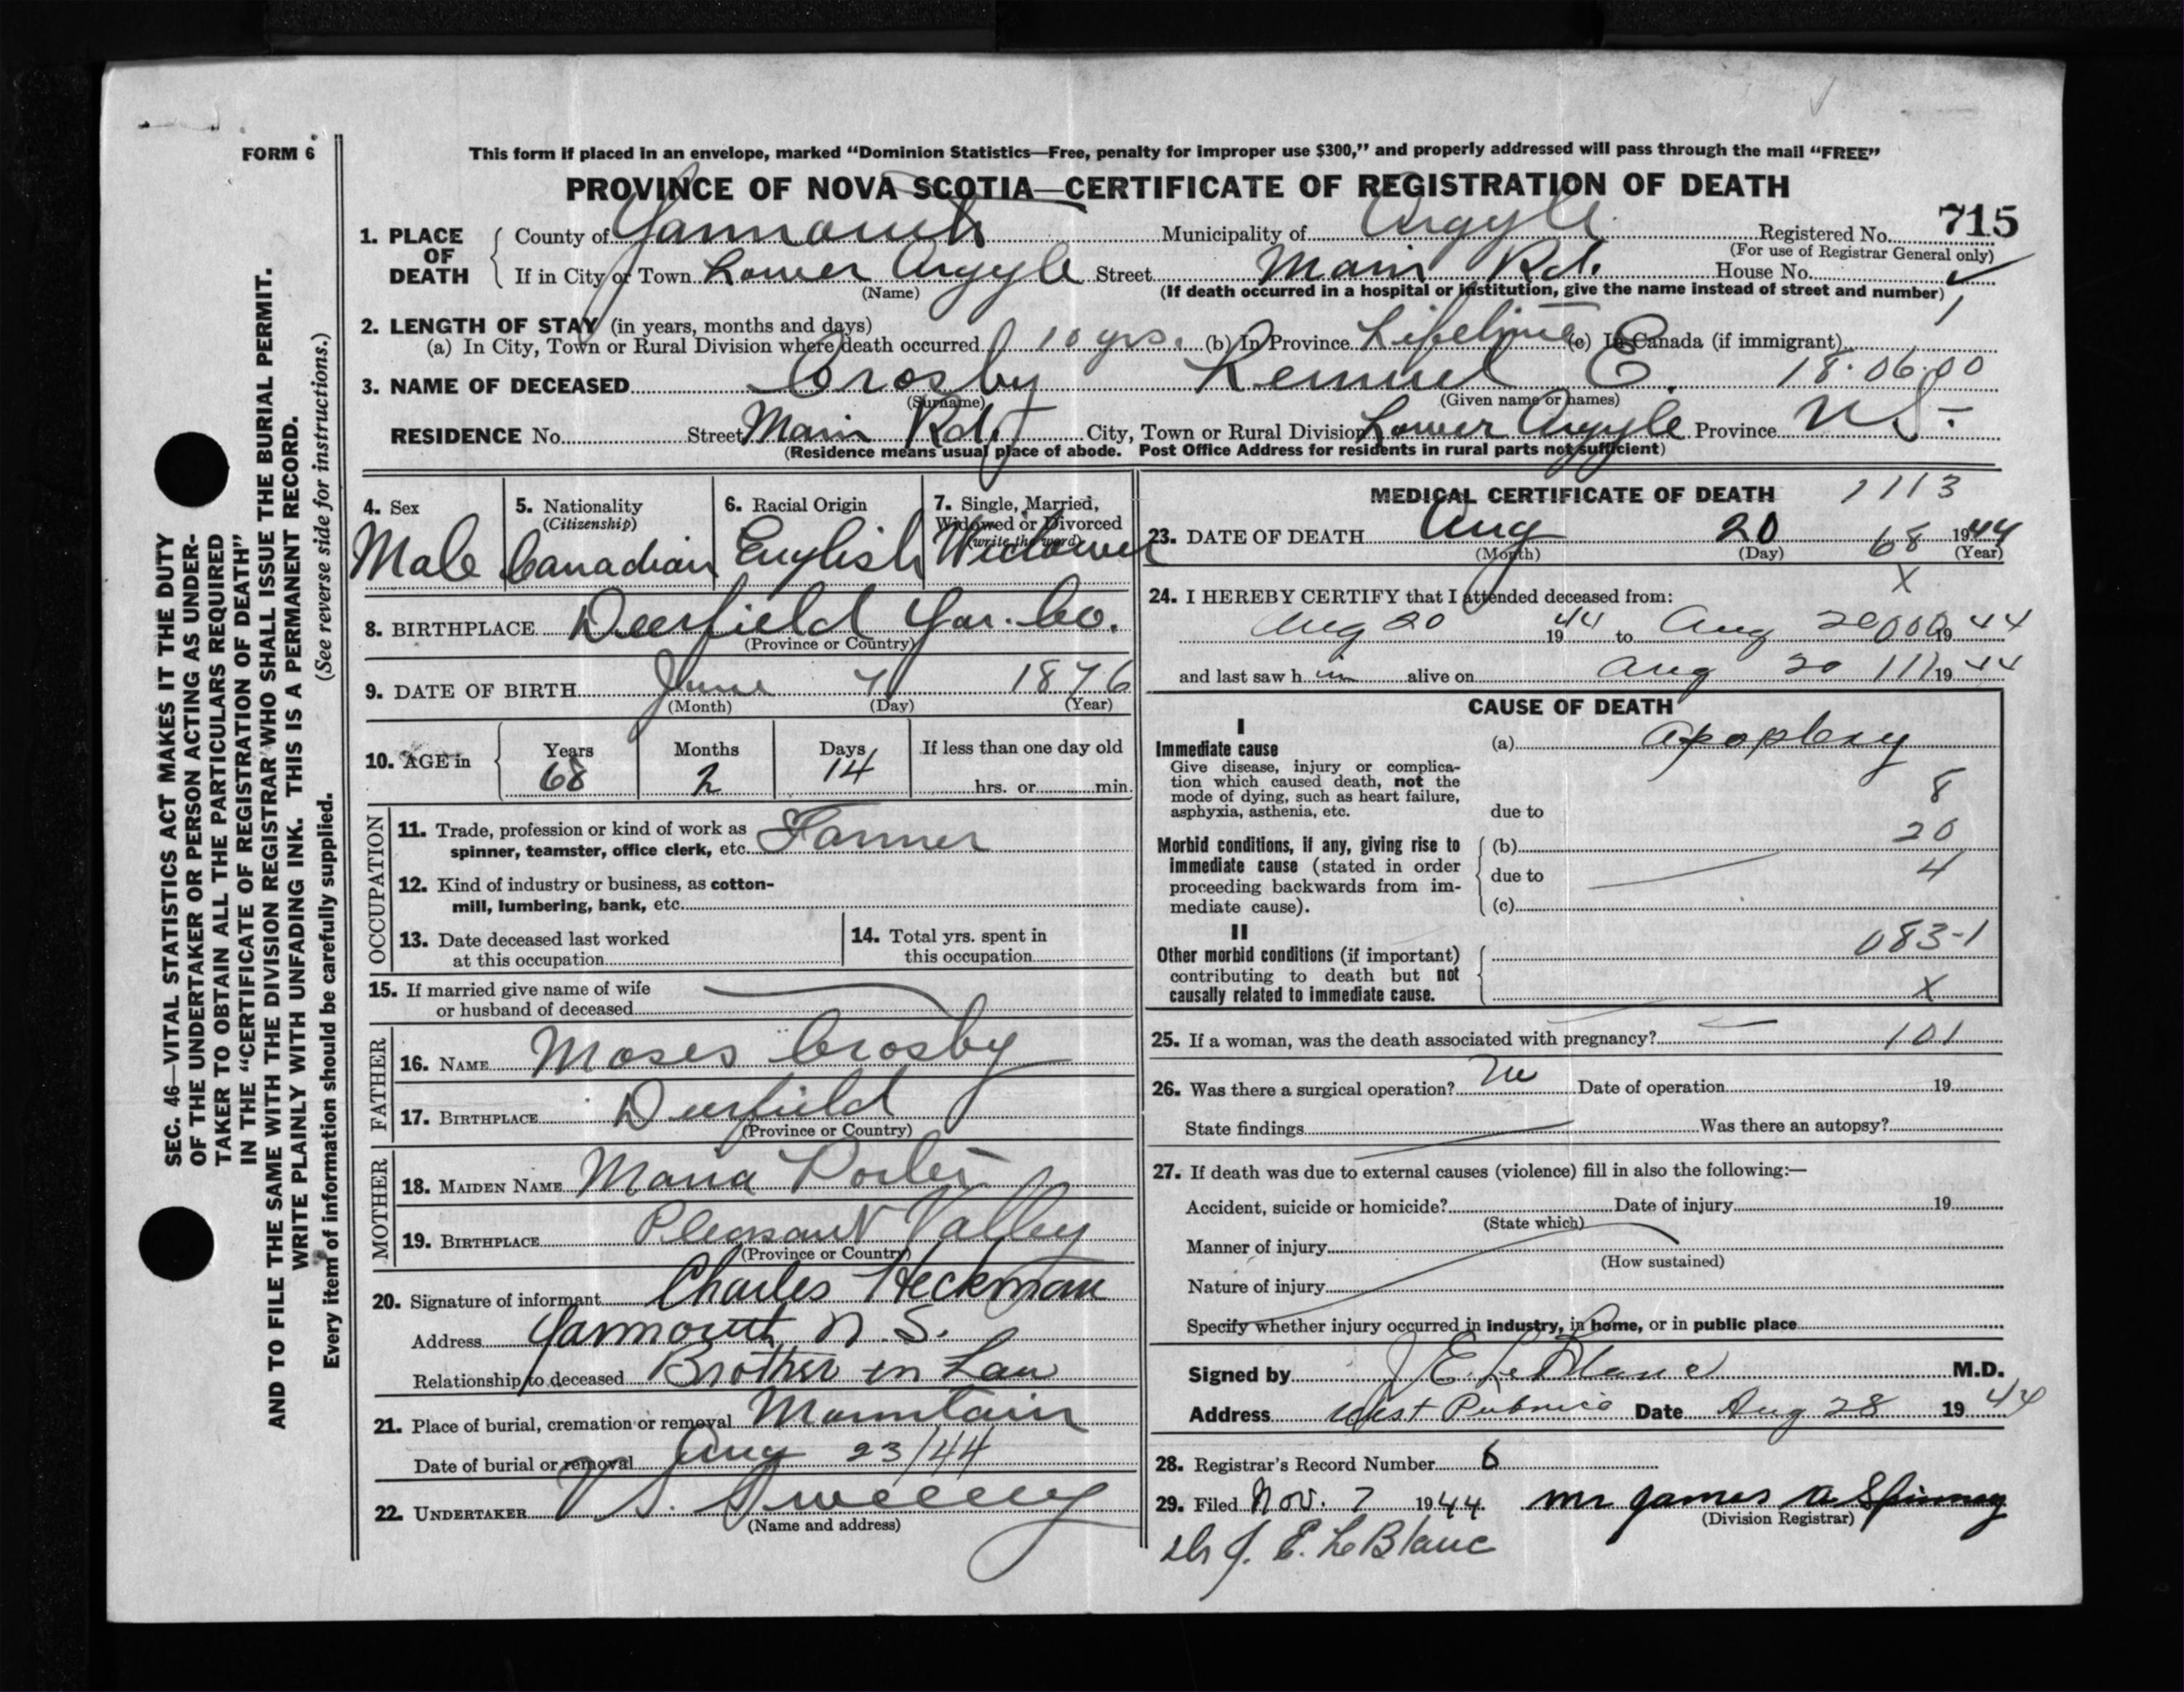 FORM 6
SEC. 46—VITAL STATISTICS ACT MAKES IT THE DUTY
OF THE UNDERTAKER OR PERSON ACTING AS UNDER-
TAKER TO OBTAIN ALL THE PARTICULARS REQUIRED
IN THE "CERTIFICATE OF REGISTRATION OF DEATH"
AND TO FILE THE SAME WITH THE DIVISION REGISTRAR WHO SHALL ISSUE THE BURIAL PERMIT.
WRITE PLAINLY WITH UNFADING INK. THIS IS A PERMANENT RECORD.
Every item of information should be carefully supplied. (See reverse side for instructions.)
This form if placed in an envelope, marked "Dominion Statistics—Free, penalty for improper use $300," and properly addressed will pass through the mail "FREE"
PROVINCE OF NOVA SCOTIA—CERTIFICATE OF REGISTRATION OF DEATH
1. PLACE OF DEATH County of Yarmouth Municipality of Argyle Registered No. 715
(For use of Registrar General only)
If in City or Town Lower Argyle Street Main Rd. House No.
(Name) (If death occurred in a hospital or institution, give the name instead of street and number)
2. LENGTH OF STAY (in years, months and days)
(a) In City, Town or Rural Division where death occurred 10 yrs. (b) In Province Lifetime (c) In Canada (if immigrant)
3. NAME OF DECEASED Crosby Lemuel E. 18.06.00
(Surname) (Given name or names)
RESIDENCE No. Street Main Rd. City, Town or Rural Division Lower Argyle Province N.S.
(Residence means usual place of abode. Post Office Address for residents in rural parts not sufficient)
4. Sex 5. Nationality 6. Racial Origin 7. Single, Married,
(Citizenship) Widowed or Divorced
(write the word)
Male Canadian English Widower
8. BIRTHPLACE Deerfield Yar. Co.
(Province or Country)
9. DATE OF BIRTH June 7 1876
(Month) (Day) (Year)
10. AGE in Years Months Days If less than one day old
68 2 14 hrs. or min.
OCCUPATION
11. Trade, profession or kind of work as
spinner, teamster, office clerk, etc. Farmer
12. Kind of industry or business, as cotton-
mill, lumbering, bank, etc.
13. Date deceased last worked
at this occupation
14. Total yrs. spent in
this occupation
15. If married give name of wife
or husband of deceased
FATHER
16. NAME Moses Crosby
17. BIRTHPLACE Deerfield
(Province or Country)
MOTHER
18. MAIDEN NAME Maria Porter
19. BIRTHPLACE Pleasant Valley
(Province or Country)
20. Signature of informant Charles Heckman
Address Yarmouth N.S.
Relationship to deceased Brother in Law
21. Place of burial, cremation or removal Mountain
Date of burial or removal Aug 23/44
22. UNDERTAKER V.S. Sweeney
(Name and address)
MEDICAL CERTIFICATE OF DEATH 1113
23. DATE OF DEATH Aug 20 68 1944
(Month) (Day) (Year)
X
24. I HEREBY CERTIFY that I attended deceased from:
Aug 20 1944 to Aug 20 000 1944
and last saw h im alive on Aug 20 111 1944
CAUSE OF DEATH
I
Immediate cause (a) Apoplexy
Give disease, injury or complica-
tion which caused death, not the
mode of dying, such as heart failure,
asphyxia, asthenia, etc. due to 8
Morbid conditions, if any, giving rise to (b) 20
immediate cause (stated in order
proceeding backwards from im-
mediate cause). due to 4
(c)
II
Other morbid conditions (if important) 083-1
contributing to death but not
causally related to immediate cause. X
25. If a woman, was the death associated with pregnancy? 101
26. Was there a surgical operation? No Date of operation 19
State findings Was there an autopsy?
27. If death was due to external causes (violence) fill in also the following:—
Accident, suicide or homicide? Date of injury 19
(State which)
Manner of injury
(How sustained)
Nature of injury
Specify whether injury occurred in industry, in home, or in public place
Signed by J E. LeBlanc M.D.
Address West Pubnico Date Aug 28 1944
28. Registrar's Record Number 6
29. Filed Nov. 7 1944 Mr James A Spinney
(Division Registrar)
Dr J. E. LeBlanc